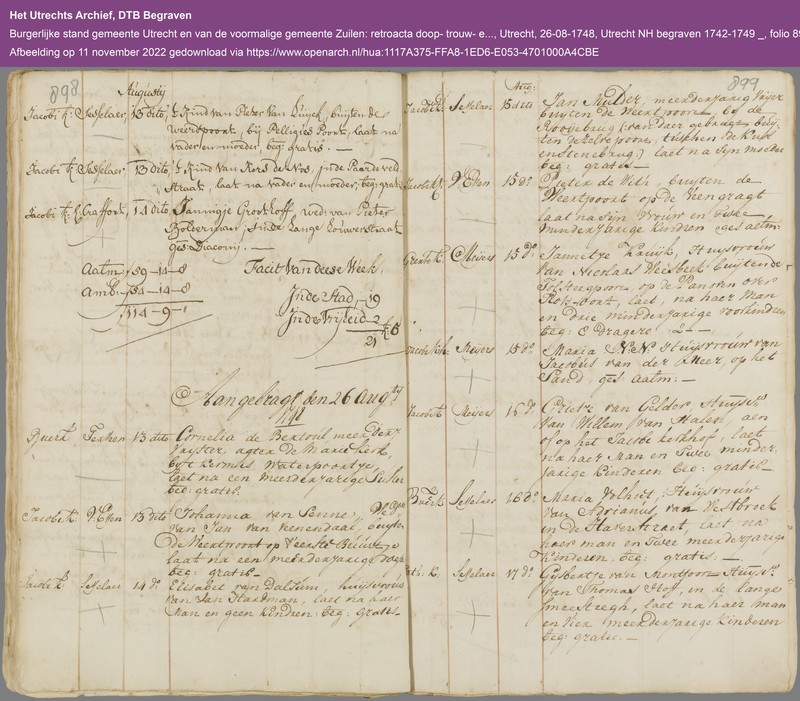 Het Utrechts Archief, DTB Begraven
Burgerlijke stand gemeente Utrecht en van de voormalige gemeente Zuilen: retroacta doop- trouw- e..., Utrecht, 26-08-1748, Utrecht NH begraven 1742-1749 _, folio 89
Afbeelding op 11 november 2022 gedownload via https://www.openarch.nl/hua:1117A375-FFA8-1ED6-E053-4701000A4CBE
898
Augustij
Jacobi k: Sesselaer, 13 dito, 't Kind van Pieter van , buyten de
weertpoort, bij Pellegies Poort, laat na
vader en moeder, beg: gratis. —
Jacobi k: Sesselaer, 13 dito, 't Kind van de Vos, inde Paerdeveld
Straat, laat na vader en moeder, beg: gratis
Jacobi k: Craffort, 14 dito, Jannigje Groothoff, wed: van Pieter
Bolerman, inde Lange Louwerstraat
ges: Diaconij. —
Aalm: 59-14-8 Facit van deese Week,
Amb: 54-14-8 Inde Stad, -19
114-9- Inde Vrijheid 2
21
Aangebragt den 26 Aug:
1748
Buerk Terken 13 dito Cornelia de meerderj:
Vrijster, agter de Marie kerk,
Waterpoortje,
laet na een meerderjarige Suster
beg: gratis.
Jacobi k V: Essen 13 dito Johanna van Senne,
van Jan van Veenendaal, buyten
de Weertpoort op 't eerste
laat na een meerderjarige
beg: gratis —
Jacobi k: Sesselaer 14 do Elisabet van Dalsum, huysvrouw
van Jan Hardman, laet na haer
Man en geen Kindren: beg: Gratis —
899
Aug:
Jacobi k: Sesselaer 15 dito Jan Mulder, meerderjarig Vrijer
buyten de Weertpoort, bij de
Roodebrug (: van daer gebragt buy-
ten de , tusschen de
en Stenebrug:) laet na sijn moeder
beg: gratis —
Jacobi k V: Essen 15 do Pieter de With, buyten de
Weertpoort op de Veengragt
laat na sijn vrouw en Twee
minderjarige kindren ges: aalm:
Geerte k. Meijers 15 do Jannetje , Huysvrouw
van Nicolaas buytende
Tolsteegpoort, op de over
, laet, na haer Man
en drie minderjarige voorkindren
beg: 8 Dragers 2 —
Jacobi kerk: Meijers 15 do Maria N:N: Huysvrouw van
Jacobus van der Meer, op het
Sand, ges: aalm: —
Jacobi k Meijers 16 do van Gelder, Huysv:
van Willem van Halen, aen
of op het Jacobi kerkhof, laet
na haer Man en Twee minder-
jarige kinderen beg: gratis —
Buerk Sesselaer 16 do Maria , Huysvrouw
van Adrianus, van Westbroek
in de Haverstraet, laet na
haer man en Twee meerderjarige
kinderen. beg: gratis. —
k. Sesselaer 17 do Gijsbertje van Montfoort Huysv:
van Thomas Hoff, in de lange
meesteegh, laet na haer man
en vier meerderjarige kinderen
beg: gratis. —